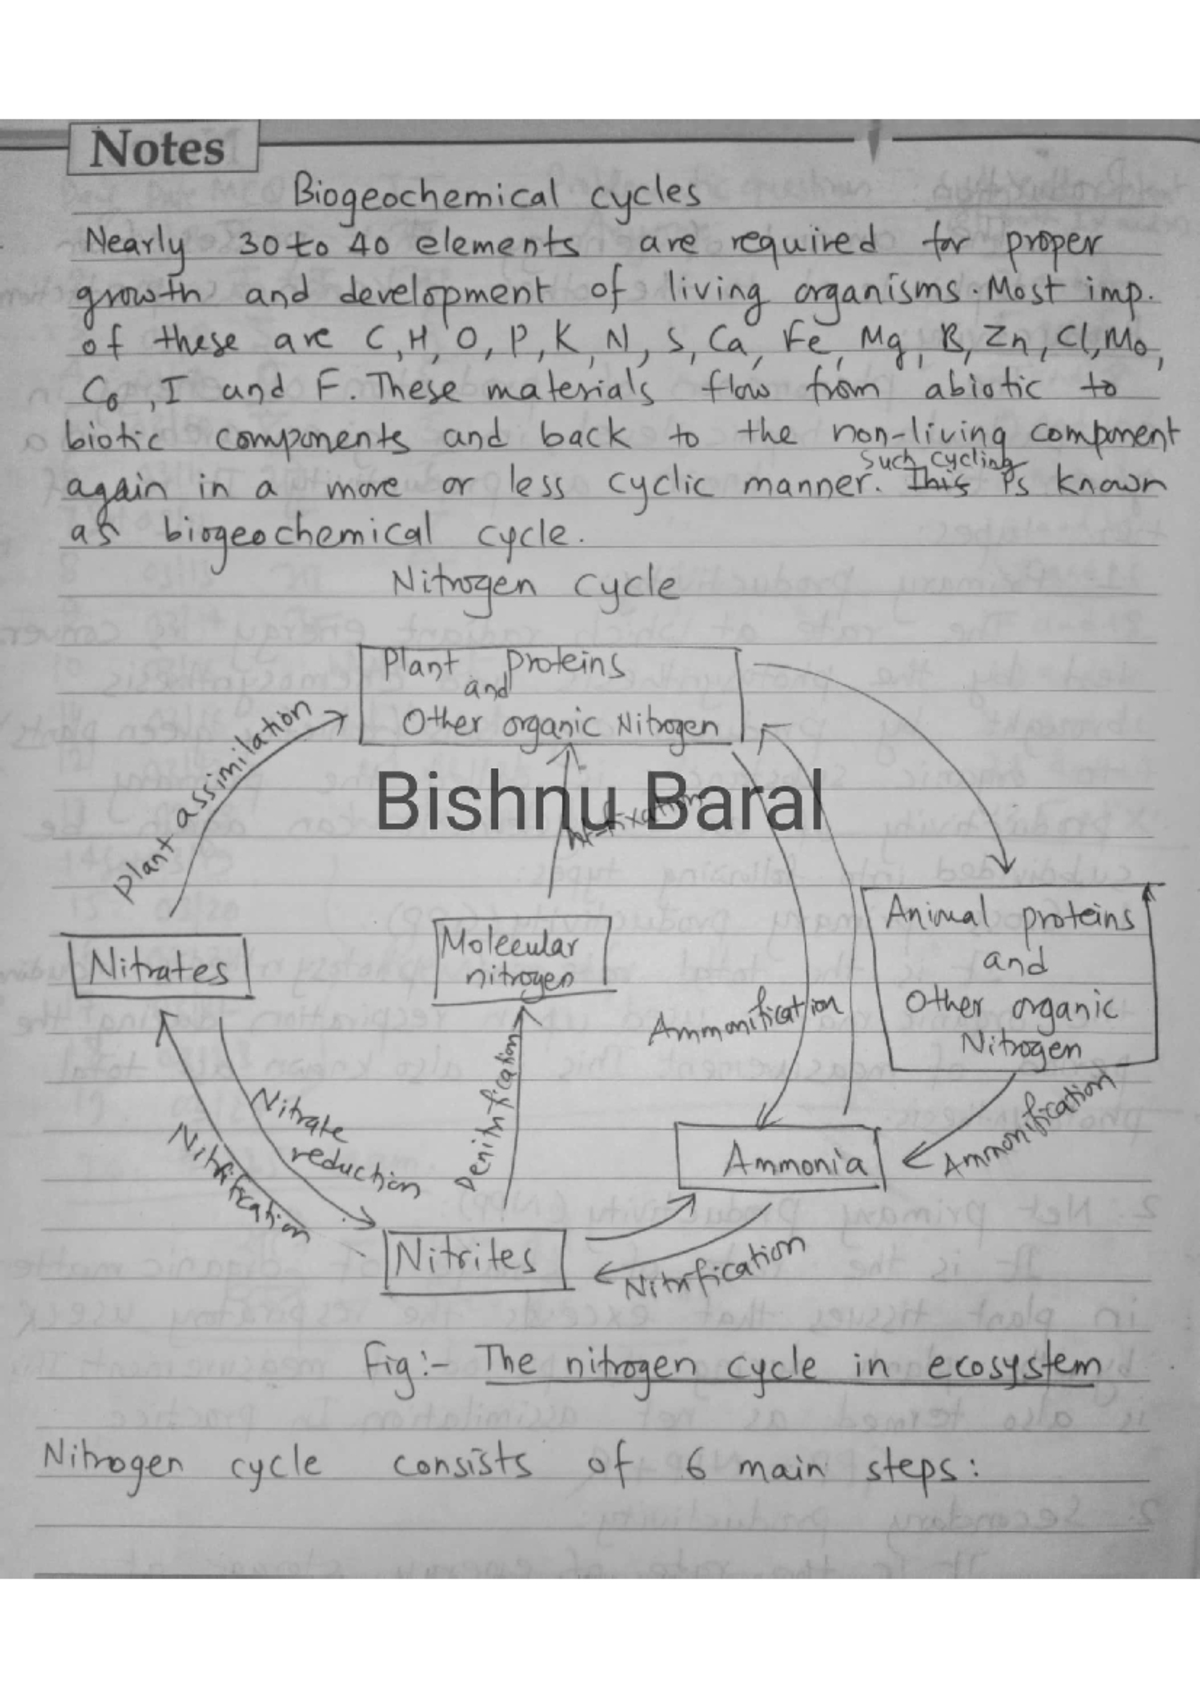 Notes
Biogeochemical cycles
Nearly 30 to 40 elements are required for proper
growth and development of living organisms. Most imp.
of these are C, H, O, P, K, N, S, Ca, Fe, Mg, B, Zn, Cl, Mo,
Co, I and F. These materials flow from abiotic to
biotic components and back to the non-living component
such cycling
again in a more or less cyclic manner. This is known
as biogeochemical cycle.
Nitrogen cycle
Plant Proteins
and
Other organic Nitrogen
Plant assimilation
Bishnu Baral
N-fixation
Nitrates
Molecular
nitrogen
Animal proteins
and
Other organic
Nitrogen
Ammonification
Nitrate
reduction
Nitrification
Denitrification
Ammonia
Ammonification
Nitrites
Nitrification
Fig:- The nitrogen cycle in ecosystem
Nitrogen cycle consists of 6 main steps: